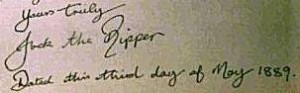 Yours truly
Jack the Ripper
Dated this third day of May 1889.